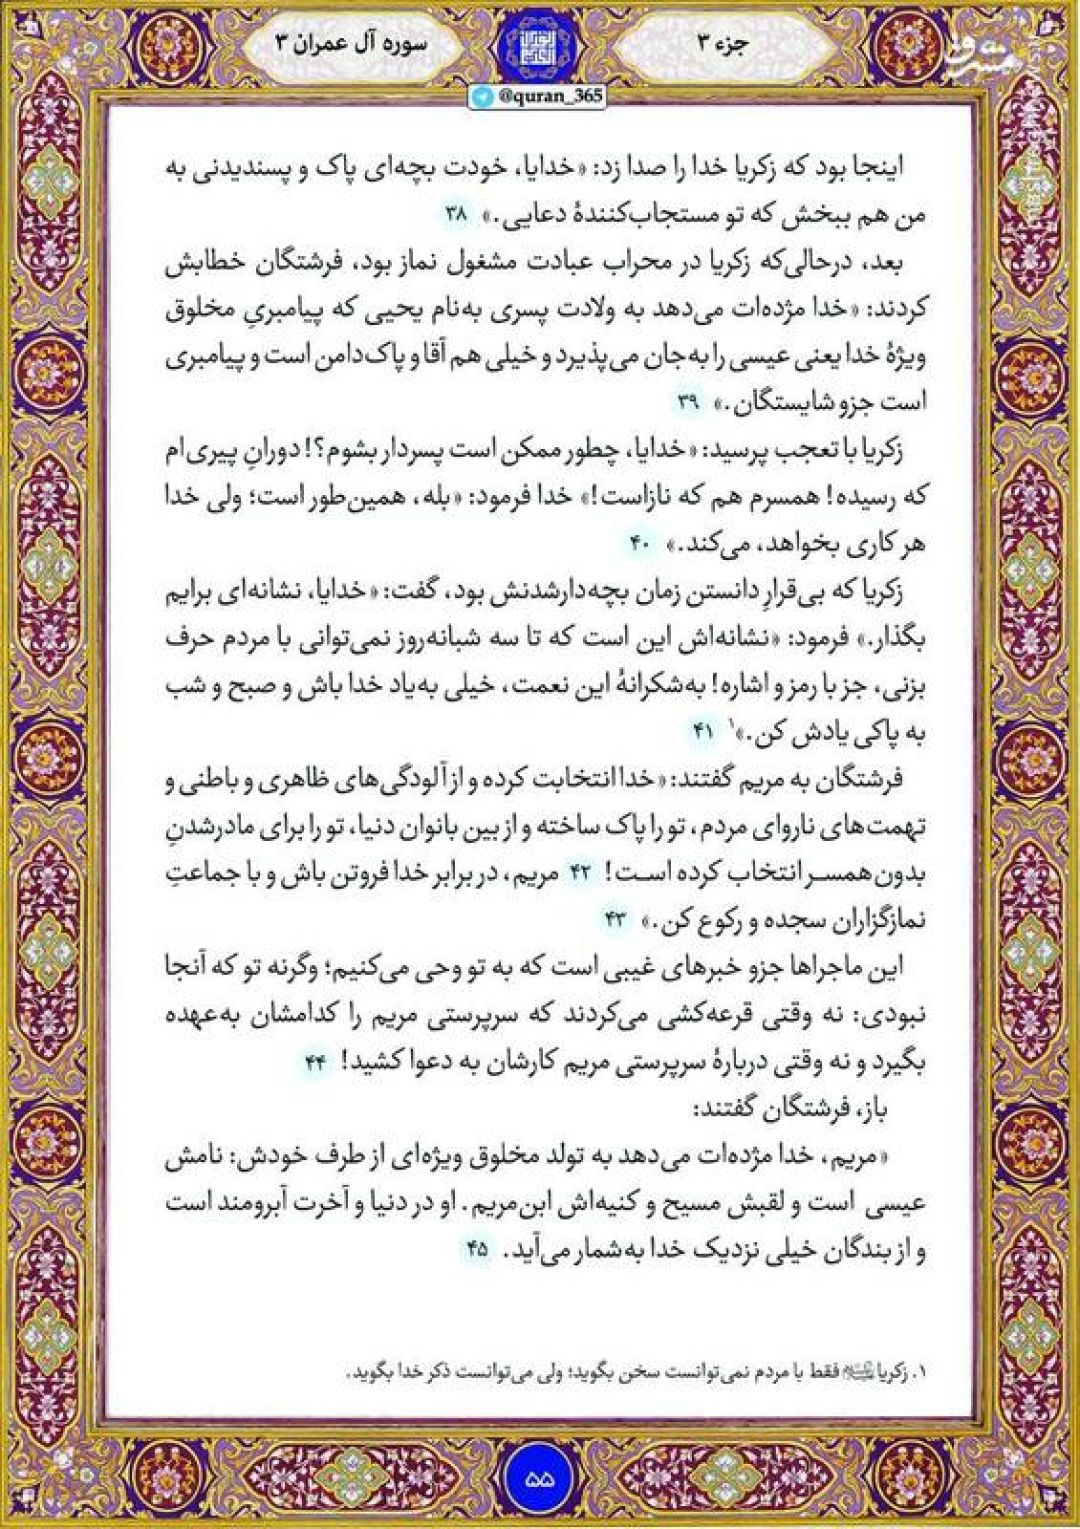 جزء ۳
سوره آل عمران ۳
@quran_365
اینجا بود که زکریا خدا را صدا زد: «خدایا، خودت بچه‌ای پاک و پسندیدنی به
من هم ببخش که تو مستجاب‌کنندهٔ دعایی.» ۳۸
بعد، درحالی‌که زکریا در محراب عبادت مشغول نماز بود، فرشتگان خطابش
کردند: «خدا مژده‌ات می‌دهد به ولادت پسری به‌نام یحیی که پیامبریِ مخلوق
ویژهٔ خدا یعنی عیسی را به‌جان می‌پذیرد و خیلی هم آقا و پاک‌دامن است و پیامبری
است جزو شایستگان.» ۳۹
زکریا با تعجب پرسید: «خدایا، چطور ممکن است پسردار بشوم؟! دورانِ پیری‌ام
که رسیده! همسرم هم که نازاست!» خدا فرمود: «بله، همین‌طور است؛ ولی خدا
هر کاری بخواهد، می‌کند.» ۴۰
زکریا که بی‌قرارِ دانستن زمان بچه‌دارشدنش بود، گفت: «خدایا، نشانه‌ای برایم
بگذار.» فرمود: «نشانه‌اش این است که تا سه شبانه‌روز نمی‌توانی با مردم حرف
بزنی، جز با رمز و اشاره! به‌شکرانهٔ این نعمت، خیلی به‌یاد خدا باش و صبح و شب
به پاکی یادش کن.»۱ ۴۱
فرشتگان به مریم گفتند: «خدا انتخابت کرده و از آلودگی‌های ظاهری و باطنی و
تهمت‌های ناروای مردم، تو را پاک ساخته و از بین بانوان دنیا، تو را برای مادرشدنِ
بدون همسر انتخاب کرده است! ۴۲ مریم، در برابر خدا فروتن باش و با جماعتِ
نمازگزاران سجده و رکوع کن.» ۴۳
این ماجراها جزو خبرهای غیبی است که به تو وحی می‌کنیم؛ وگرنه تو که آنجا
نبودی: نه وقتی قرعه‌کشی می‌کردند که سرپرستی مریم را کدامشان به‌عهده
بگیرد و نه وقتی دربارهٔ سرپرستی مریم کارشان به دعوا کشید! ۴۴
باز، فرشتگان گفتند:
«مریم، خدا مژده‌ات می‌دهد به تولد مخلوق ویژه‌ای از طرف خودش: نامش
عیسی است و لقبش مسیح و کنیه‌اش ابن‌مریم. او در دنیا و آخرت آبرومند است
و از بندگان خیلی نزدیک خدا به‌شمار می‌آید. ۴۵
۱. زکریا فقط با مردم نمی‌توانست سخن بگوید؛ ولی می‌توانست ذکر خدا بگوید.
۵۵